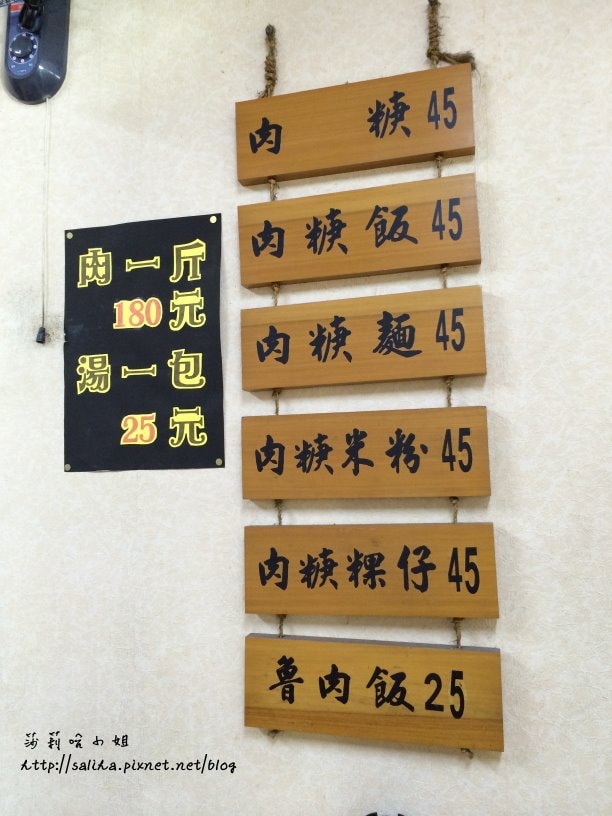 肉一斤
180元
湯一包
25元
肉 焿45
肉焿飯45
肉焿麵45
肉焿米粉45
肉焿粿仔45
魯肉飯25
莎莉哈小姐
http://saliha.pixnet.net/blog